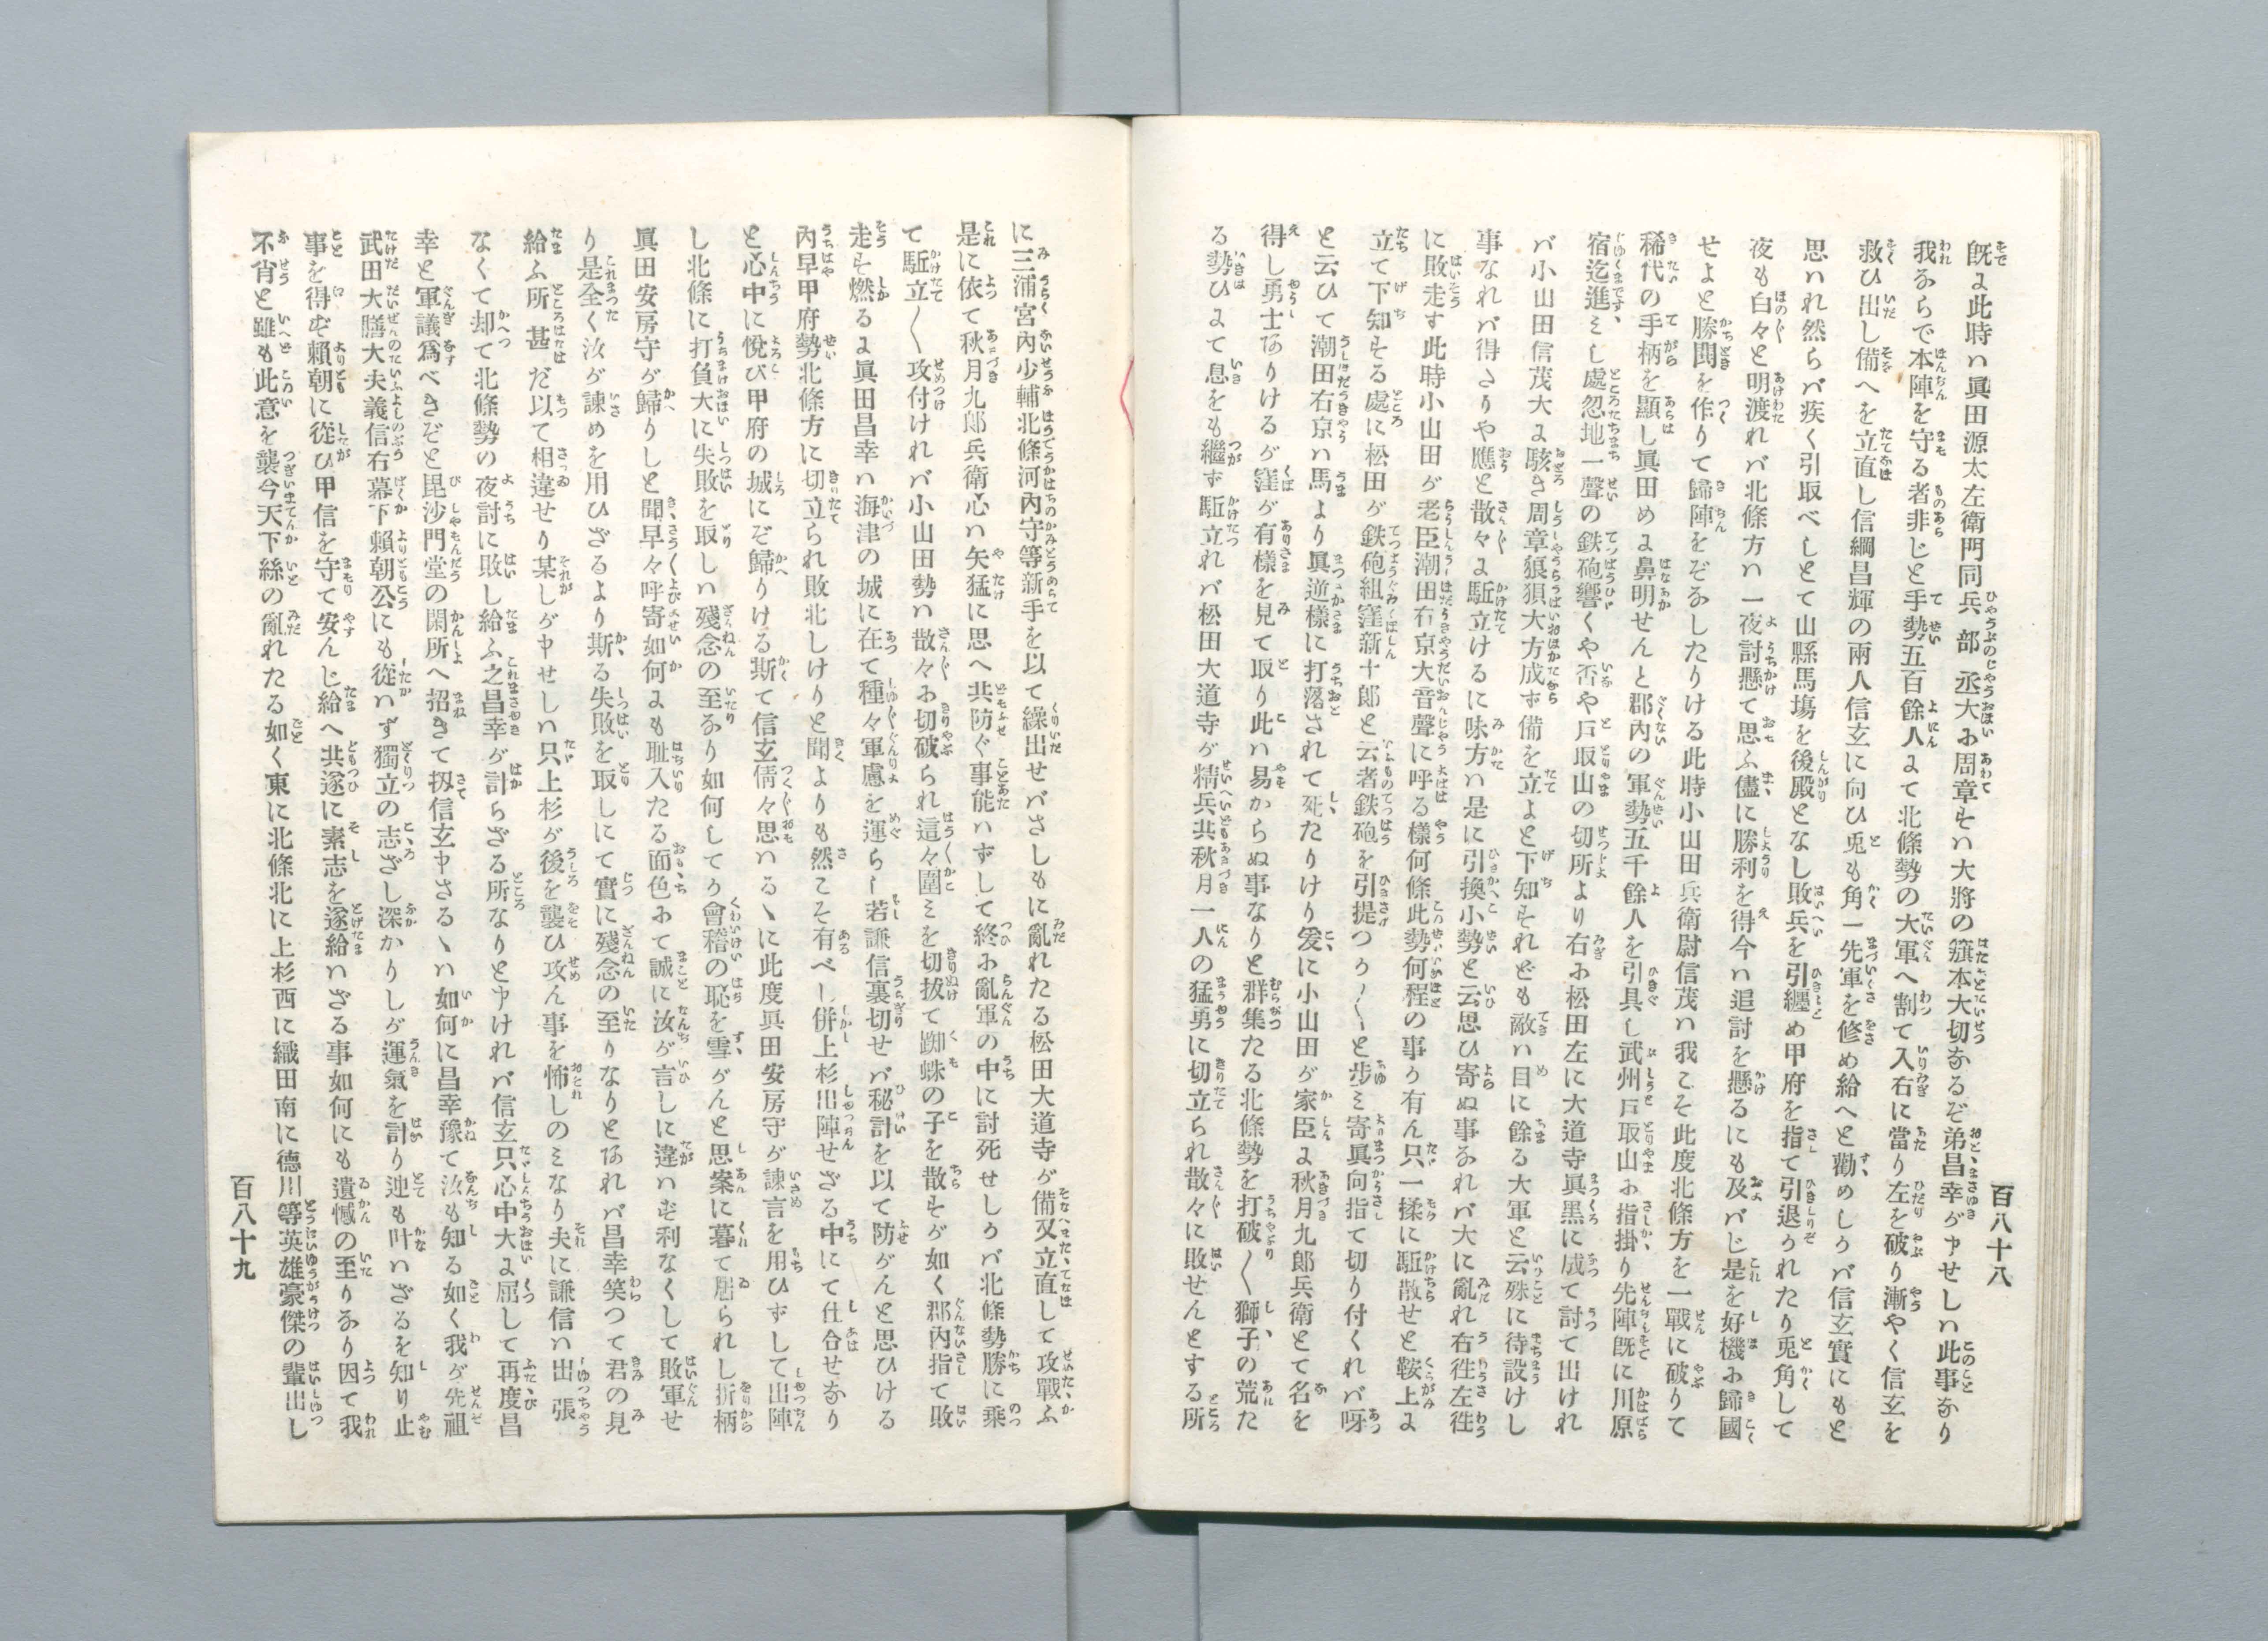 百八十八
既に此時ハ眞田源太左衛門同兵部丞大に周章せハ大將の籏本大切なるぞ弟昌幸が申せしハ此事なり
我ならで本陣を守る者非じと手勢五百餘人にて北條勢の大軍へ割て入右に當り左を破り漸やく信玄を
救ひ出し備へを立直し信綱昌輝の兩人信玄に向ひ兎も角一先軍を修め給へと勸めしかバ信玄實にもと
思ハれ然らバ疾く引取べしとて山縣馬塲を後殿となし敗兵を引纏め甲府を指て引退かれたり兎角して
夜も白々と明渡れバ北條方ハ一夜討懸て思ふ儘に勝利を得今ハ追討を懸るにも及バじ是を好機に歸國
せよと勝鬨を作りて歸陣をぞなしたりける此時小山田兵衛尉信茂ハ我こそ此度北條方を一戰に破りて
稀代の手柄を顯し眞田めに鼻明せんと郡內の軍勢五千餘人を引具し武州戸取山に指掛り先陣既に川原
宿迄進ミし處忽地一聲の鉄砲響くや否や戸取山の切所より右に松田左に大道寺眞黒に成て討て出けれ
バ小山田信茂大に駭き周章狼狽大方成ず備を立よと下知すれども敵ハ目に餘る大軍と云殊に待設けし
事なれバ得さりや應と散々に駈立けるに味方ハ是に引換小勢と云思ひ寄ぬ事なれバ大に亂れ右徃左徃
に敗走す此時小山田が老臣潮田右京大音聲に呼る樣何條此勢何程の事か有ん只一揉に駈散せと鞍上に
立て下知する處に松田が鉄砲組窪新十郎と云者鉄砲を引提つか〱と歩ミ寄眞向指て切り付くれバ呀
と云ひて潮田右京ハ馬より眞逆樣に打落されて死たりけり爰に小山田が家臣に秋月九郎兵衛とて名を
得し勇士ありけるが窪が有樣を見て取り此ハ易からぬ事なりと群集たる北條勢を打破〱獅子の荒た
る勢ひにて息をも繼ず駈立れバ松田大道寺が精兵共秋月一人の猛勇に切立られ散々に敗せんとする所
に三浦宮內少輔北條河內守等新手を以て繰出せバさしもに亂れたる松田大道寺が備又立直して攻戰ふ
是に依て秋月九郎兵衛心ハ矢猛に思へ共防ぐ事能ハずして終に亂軍の中に討死せしかバ北條勢勝に乘
て駈立〱攻付けれバ小山田勢ハ散々に切破られ這々圍ミを切拔て蜘蛛の子を散すが如く郡內指て敗
走す燃るに眞田昌幸ハ海津の城に在て種々軍慮を運らし若謙信裏切せバ秘計を以て防がんと思ひける
內早甲府勢北條方に切立られ敗北しけりと聞よりも然こそ有べし併上杉出陣せざる中にて仕合せなり
と心中に悅び甲府の城にぞ歸りける斯て信玄倩々思ハるヽに此度眞田安房守が諫言を用ひずして出陣
し北條に打負大に失敗を取しハ殘念の至なり如何してか會稽の恥を雪がんと思案に暮て居られし折柄
眞田安房守が歸りしと聞早々呼寄如何にも耻入たる面色にて誠に汝が言しに違ハず利なくして敗軍せ
り是全く汝が諫めを用ひざるより斯る失敗を取しにて實に殘念の至りなりとあれバ昌幸笑つて君の見
給ふ所甚だ以て相違せり某しが申せしハ只上杉が後を襲ひ攻ん事を怖しのミなり夫に謙信ハ出張
なくて却て北條勢の夜討に敗し給ふ之昌幸が計らざる所なりと申けれバ信玄只心中大に屈して再度昌
幸と軍議爲べきぞと毘沙門堂の閑所へ招きて扨信玄申さるヽハ如何に昌幸豫て汝も知る如く我が先祖
武田大膳大夫義信右幕下賴朝公にも從ハず獨立の志ざし深かりしが運氣を計り迚も叶ハざるを知り止
事を得ず賴朝に從ひ甲信を守て安んじ給へ共遂に素志を遂給ハざる事如何にも遺憾の至りなり因て我
不肖と雖も此意を襲今天下絲の亂れたる如く東に北條北に上杉西に織田南に德川等英雄豪傑の輩出し
百八十九